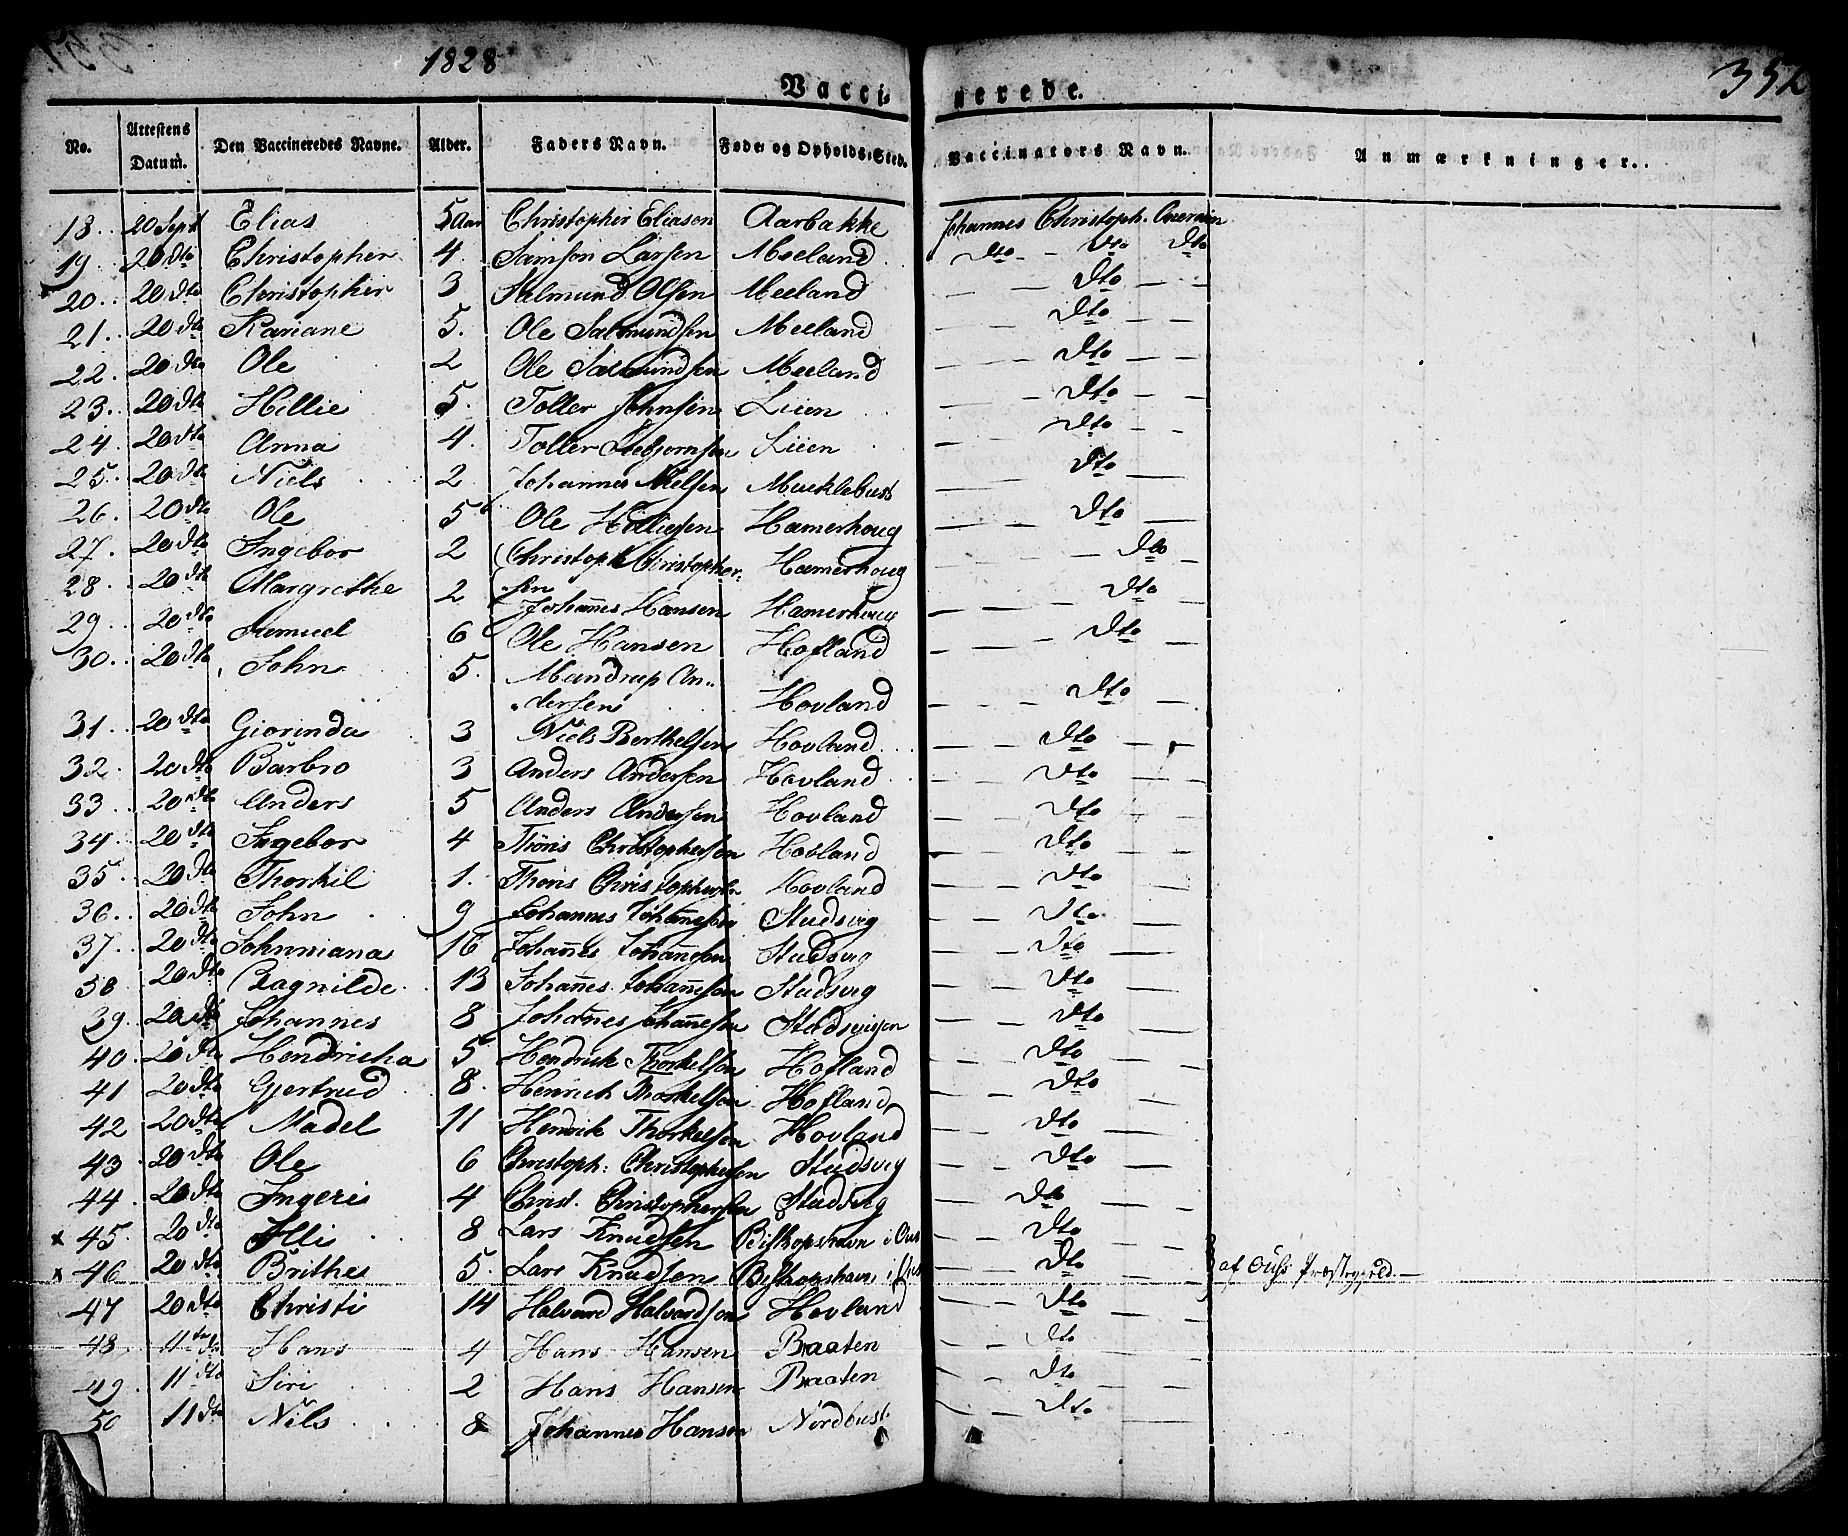 1828
352
Vaccinerede.
No. Attestens Datum. Den Vaccineredes Navne. Alder. Faders Navn. Føde- og Opholds-Sted. Vaccinators Navn. Anmærkninger.
18. 20 Sept Elias 5 Aar Christopher Eliasen Aarbakke Johannes Christoph.
19. 20 dto Christopher 4. Samson Larsen Meeland dto dto dto
20. 20 dto Christopher 3 Salmund Olsen Meeland — — dto — —
21. 20 dto Kariane 5. Ole Salmundsen Meeland — — dto — —
22. 20 dto Ole 2 Ole Salmundsen Meeland — — dto — —
23. 20 dto Hillie 5. Toller Johnsen Liien — — dto — —
24. 20 dto Anna 4. Toller Liien — — dto — —
25. 20 dto Niels 2 Johannes Nielsen Mucklebust — — dto —
26. 20 dto Ole 5 Ole Hilliesen Hamerhoug — — dto —
27. 20 dto Ingebor 2 Christoph Christopher- Hamerhoug — dto —
28. 20 dto Margrethe 2 sen
Johannes Hansen Hamerhoug — — dto —
29. 20 dto Samuel 6 Ole Hansen Hofland — — dto —
30. 20 dto John 5. Mandrup An-
dersen Hovland — — — dto —
31. 20 dto Giorinda 3 Niels Berthelsen Hovland — — dto — —
32. 20 dto Barbro 3 Anders Andersen Hovland — — dto — —
33. 20 dto Anders 5 Anders Andersen Hovland — — dto — —
34. 20 dto Ingebor 4 Thoris Christophersen Hovland — — dto — —
35. 20 dto Thorkil 1. Thoris Christophersen Hovland — — dto — —
36. 20 dto John 9 Johannes Johannesen Studsvig — — dto — —
37. 20 dto Johnniana 16 Johannes Johannesen Studsvig — — dto — —
38 20 dto Ragnilde 13 Johannes Johannesen Studsvig — — dto — —
39. 20 dto Johannes 8 Johannes Johannesen — — dto — —
40. 20 dto Hendricha 5 Hendrick Thorkelsen Hofland — — dto — —
41 20 dto Giertrud 8. Henrich Thorkelsen Hofland — — dto — —
42 20 dto Madel 11 Hendrik Thorkelsen Hovland — — dto — —
43 20 dto Ole 6 Christoph: Christophersen Studsvig — — dto — —
44. 20 dto Ingeris 4 Christ. Christophersen Studsvig — — dto — —
x 45. 20 dto Illi 8 Lars Knudsen Biskopshavn i — — dto — —
x 46 20 dto Brithe 5. Lars Knudsen Biskopshavn i — — dto — — af Præstegjeld. —
47 20 dto Christi 14 Halvard Halvardsen Hovland — — dto — —
48. 11 dto Hans 4 Hans Hansen Braaten — — dto — —
49. 11 dto Siri 2 Hans Hansen Braaten — — dto — —
50 11 dto Nils 8 Johannes Hansen Nordbust — — dto — —